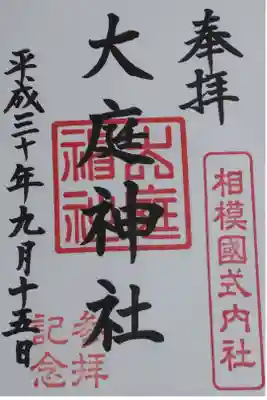 奉拝
相模國式内社
大庭神社
大庭神社
平成三十年九月十五日
参拝
記念